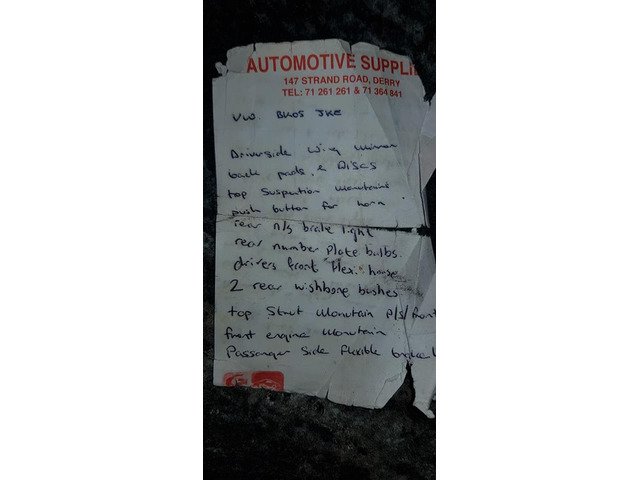 AUTOMOTIVE SUPPLI
147 STRAND ROAD, DERRY
TEL: 71 261 261 & 71 364 841
VW. BK05 JKE
Driverside Wing Mirror
back pads & Discs
top Suspention Mountains
push button for horn
rear n/s brake light
rear number Plate bulbs.
drivers front flexi house
2 rear wishbone bushes
top Strut Mountain P/S/front
front engine Mountain
Passanger Side flexible